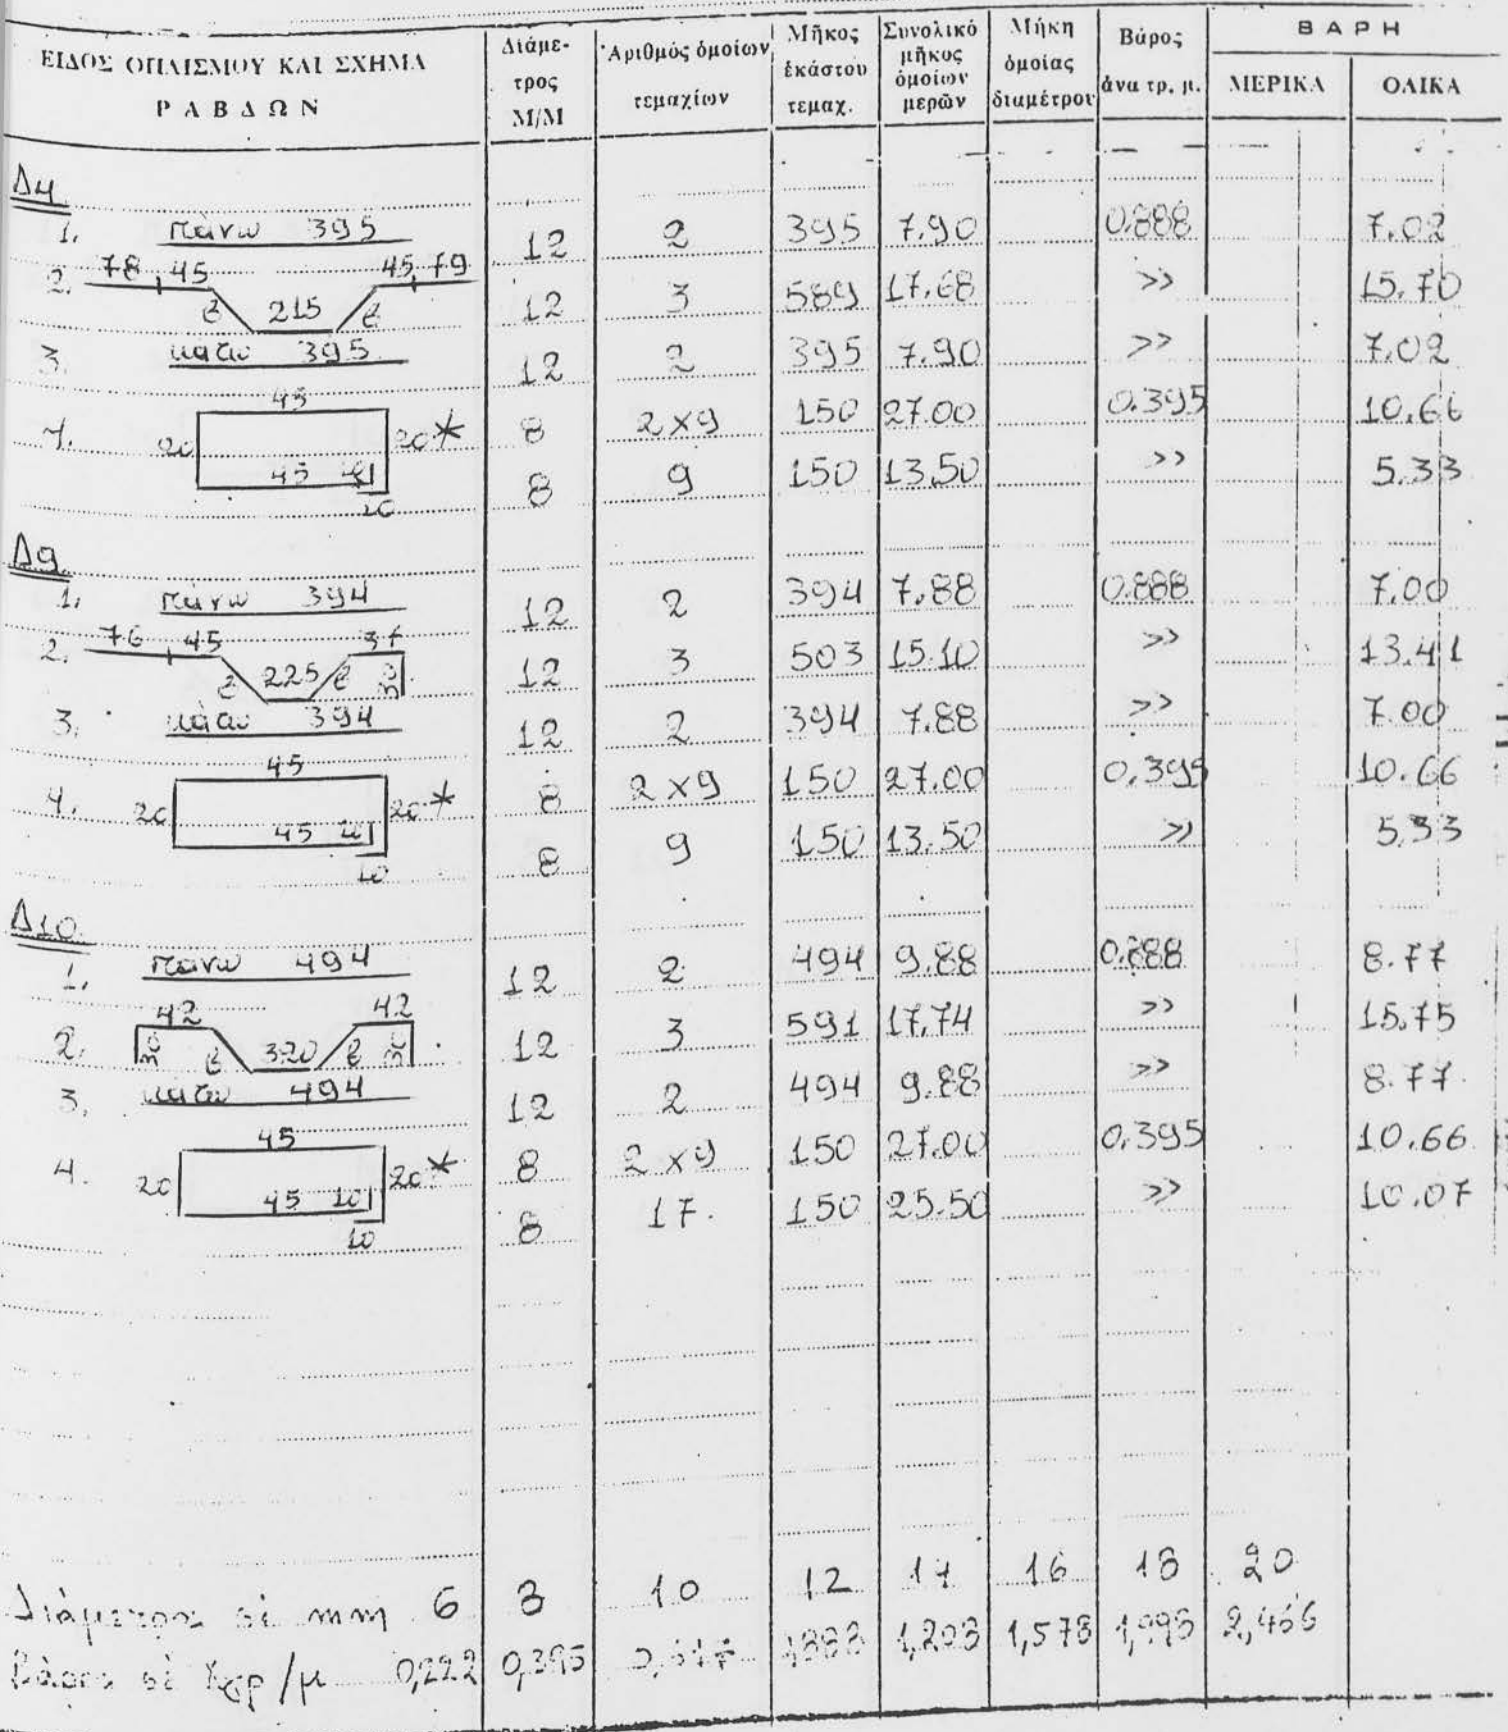 ΕΙΔΟΣ ΟΠΛΙΣΜΟΥ ΚΑΙ ΣΧΗΜΑ ΡΑΒΔΩΝ
Διάμε-τρος Μ/Μ
Ἀριθμός ὁμοίων τεμαχίων
Μῆκος ἑκάστου τεμαχ.
Συνολικό μῆκος ὁμοίων μερῶν
Μήκη ὁμοίας διαμέτρου
Βάρος ἀνα τρ. μ.
ΒΑΡΗ
ΜΕΡΙΚΑ
ΟΛΙΚΑ
Δ4
1. πάνω 395 12 2 395 7.90 0.888 7.02
2. 78 45 215 45 79 12 3 589 17.68 >> 15.70
3. κατω 395 12 2 395 7.90 >> 7.02
45
4. 20 20* 8 2×9 150 27.00 0.395 10.66
45 8 9 150 13.50 >> 5.33
Δ9
1. πάνω 394 12 2 394 7.88 0.888 7.00
2. 76 45 225 37 12 3 503 15.10 >> 13.41
3. κάτω 394 12 2 394 7.88 >> 7.00
45
4. 20 20* 8 2×9 150 27.00 0.395 10.66
45 10 8 9 150 13.50 >> 5.33
10
Δ10
1. πάνω 494 12 2 494 9.88 0.888 8.77
42 42
2. 30 320 30 12 3 591 17.74 >> 15.75
3. κάτω 494 12 2 494 9.88 >> 8.77
45
4. 20 20* 8 2×9 150 27.00 0.395 10.66
45 10 8 17. 150 25.50 >> 10.07
10
Διάμετρος σέ mm 6 8 10 12 14 16 18 20
Βάρος σέ Χγρ/μ 0,222 0,395 0,617 1,208 1,578 1,998 2,466